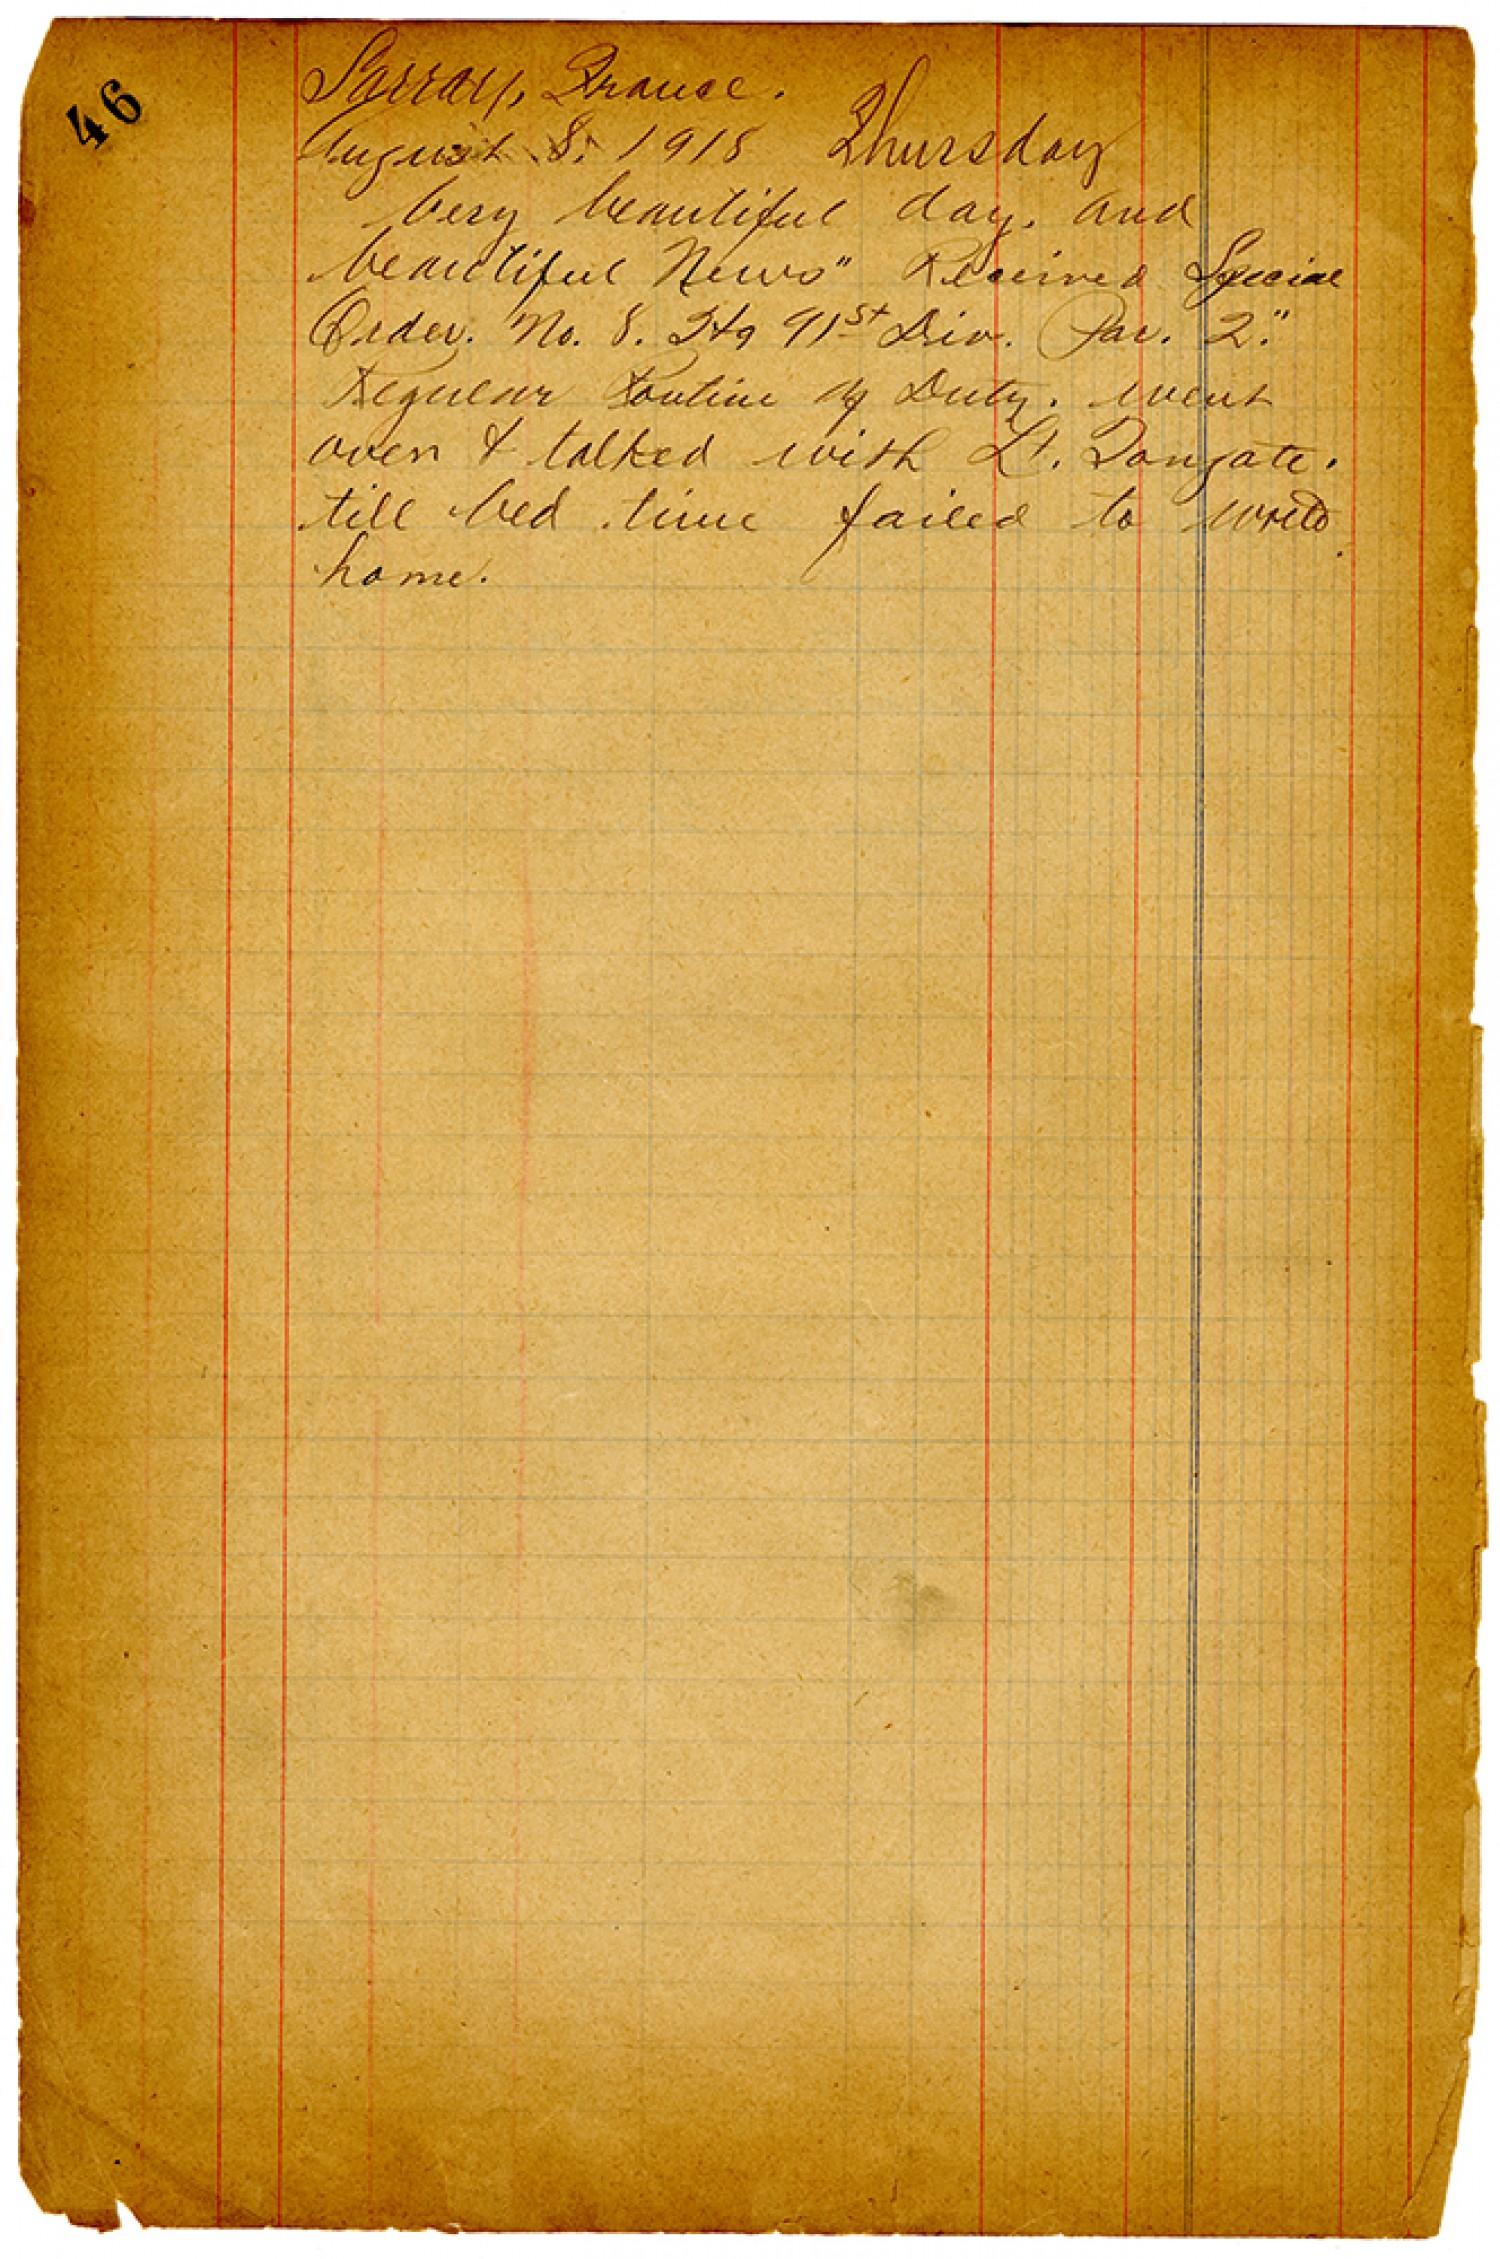 46
Sarrey, France.
August 8. 1918 Thursday
Very beautiful day. and
beautiful News" Received Special
Order. No. 8. Hq 91st Div. Par. 2."
Regular Routine of Duty. went
over & talked with Lt.
till bed time failed to write
home.